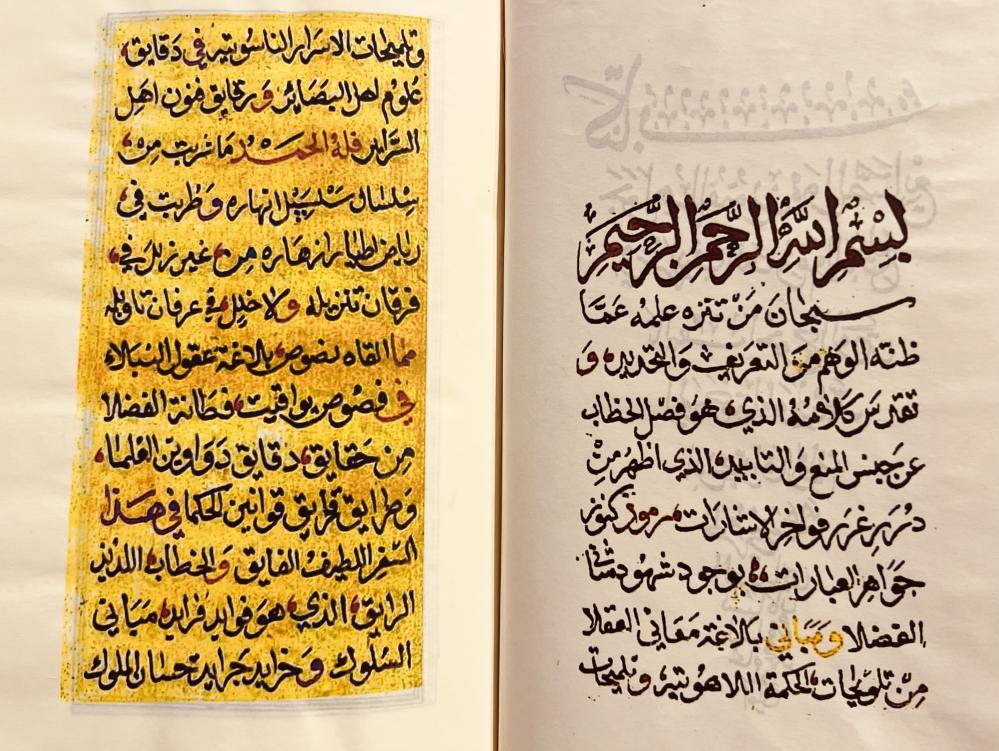 بسم الله الرحمن الرحيم
سبحان من تنزه علمه عما
ظنته الوهم من التعريف والتحديد و
تقدس كلامه الذي هو فصل الخطاب
عن جنس المنع والتابيد الذي اظهر من
درر غرر فواخر الاشارات مرموز كنوز
جواهر العبارات بوجود شهود
الفضلا ومباني بلاغة معاني العقلا
من تلويحات الحكمة اللاهوتيه وتلميحات
وتلميحات الاسرار الناسوتيه في دقايق
علوم اهل البصاير ورقايق فنون اهل
السراير فلله الحمد ما شربت من
سلسال سلسبيل انهاره وطربت في
رياض لطايف ازهاره من غير زلل في
فرقان تنزيله ولا خلل في عرفان تاويله
مما القاه نصوص بلاغة عقول النبلاء
في فصوص يواقيت فطانة الفضلا
من حقايق دقايق دواوين العلما
وطرايق فرايق قوانين الحكما في هذا
السفر اللطيف الفايق والخطاب اللذيذ
الرايق الذي هو فوايد فرايد مباني
السلوك وخرايد جرايد حسان الملوك